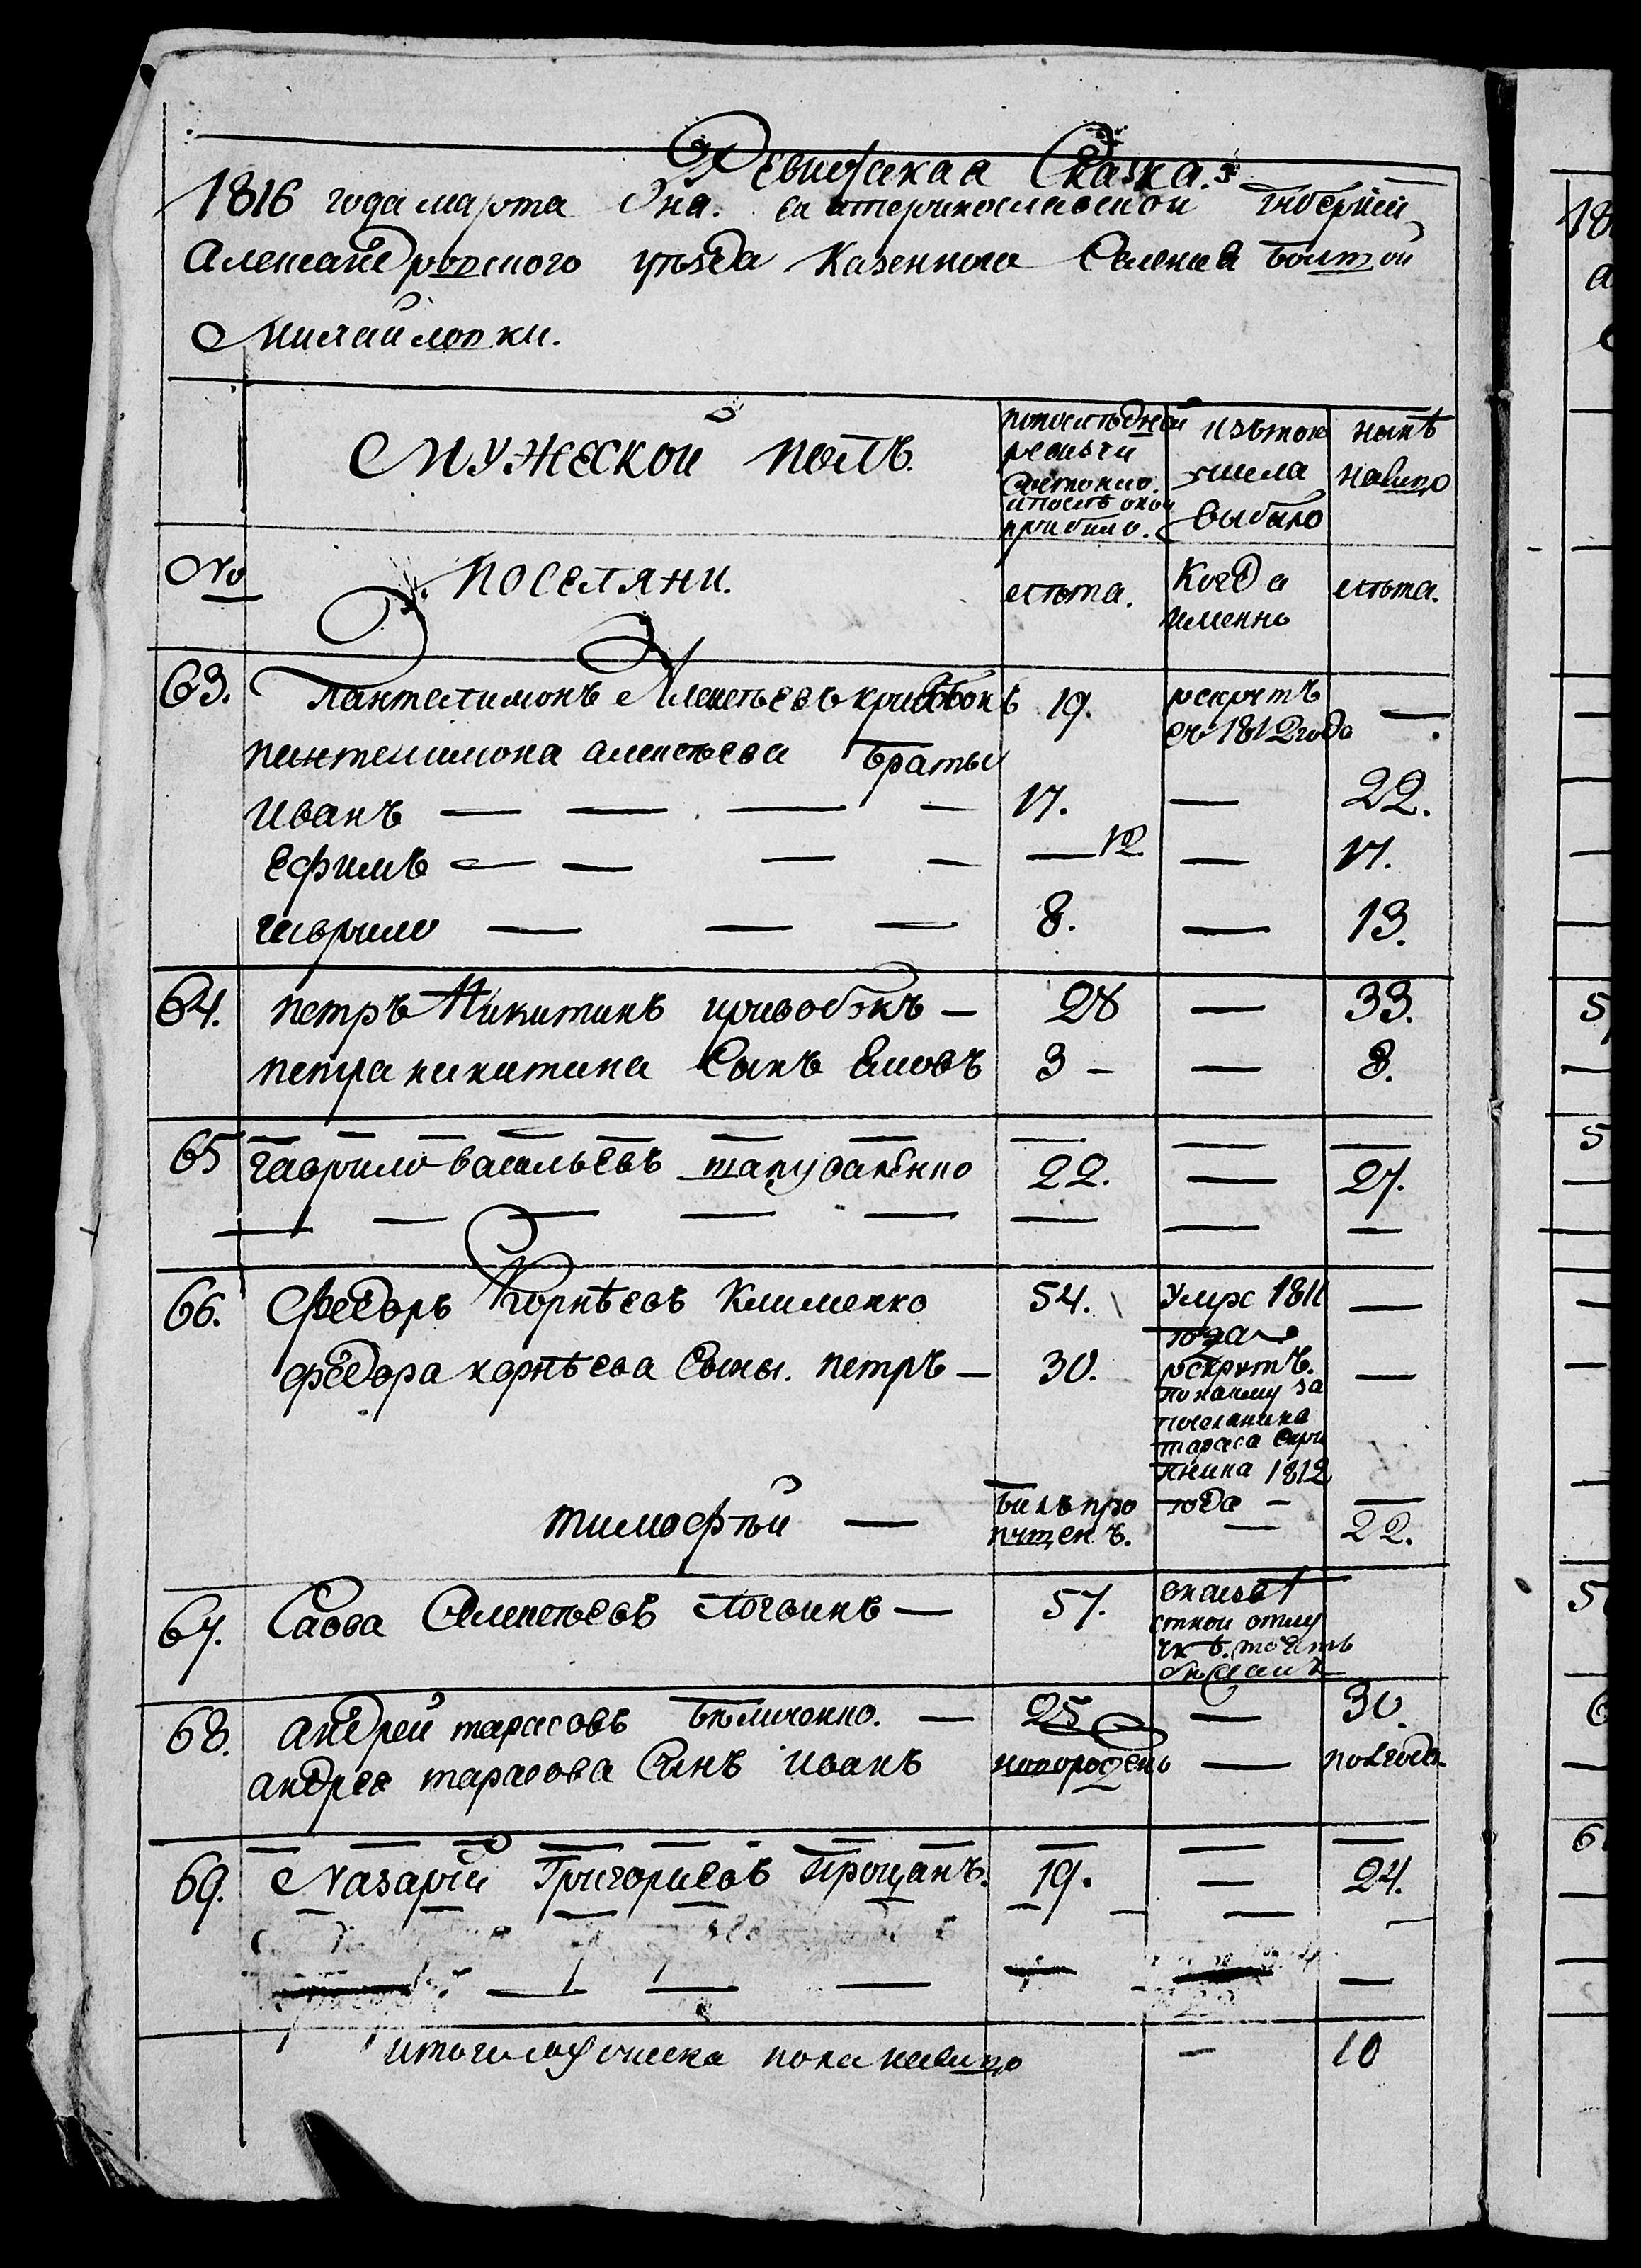 Ревижская Сказка.
1816 года марта дня. екатеринославской губернии
Александровского уезда Казенного Селения Болшой
Михайловки.
Мужеской полъ.
попоследней ревизии состояло. и после оной прибыло.
изътого числа выбыло
ныне налицо
№
поселяни.
елета.
Когда именно
елета.
63. Пантелимонъ Алексеевъ кривобокъ 19. рекрутъ
въ 1812 года —
пантелимона алексеева братья
Иванъ — — — — 17. — 22.
Ефимъ — — — — — 12 — 17.
гаврило — — — 8. — 13.
64. петръ Никитинъ кривобокъ — 28 — 33.
петра никитина Сынъ 3 — — 8.
65 гаврило васильевъ 22. — 27.
66. Федоръ Корнѣевъ Клименко 54. умре 1811 —
года
федора корнѣева Сыны. петръ — 30. рекрутъ. —
по найму за
поселанина
тараса скри
пника 1812
года —
тимофѣй — былъ про
пущенъ. — 22.
67. Савва Алексѣевъ Логвинъ — 57.
68. андрей тарасовъ — 25 — 30.
андрея тарасова Сынъ иванъ новорожденъ — полгода
69. Назарій Григориевъ Процанъ. 19. — 24.
итого мужеска пола налицо — 10